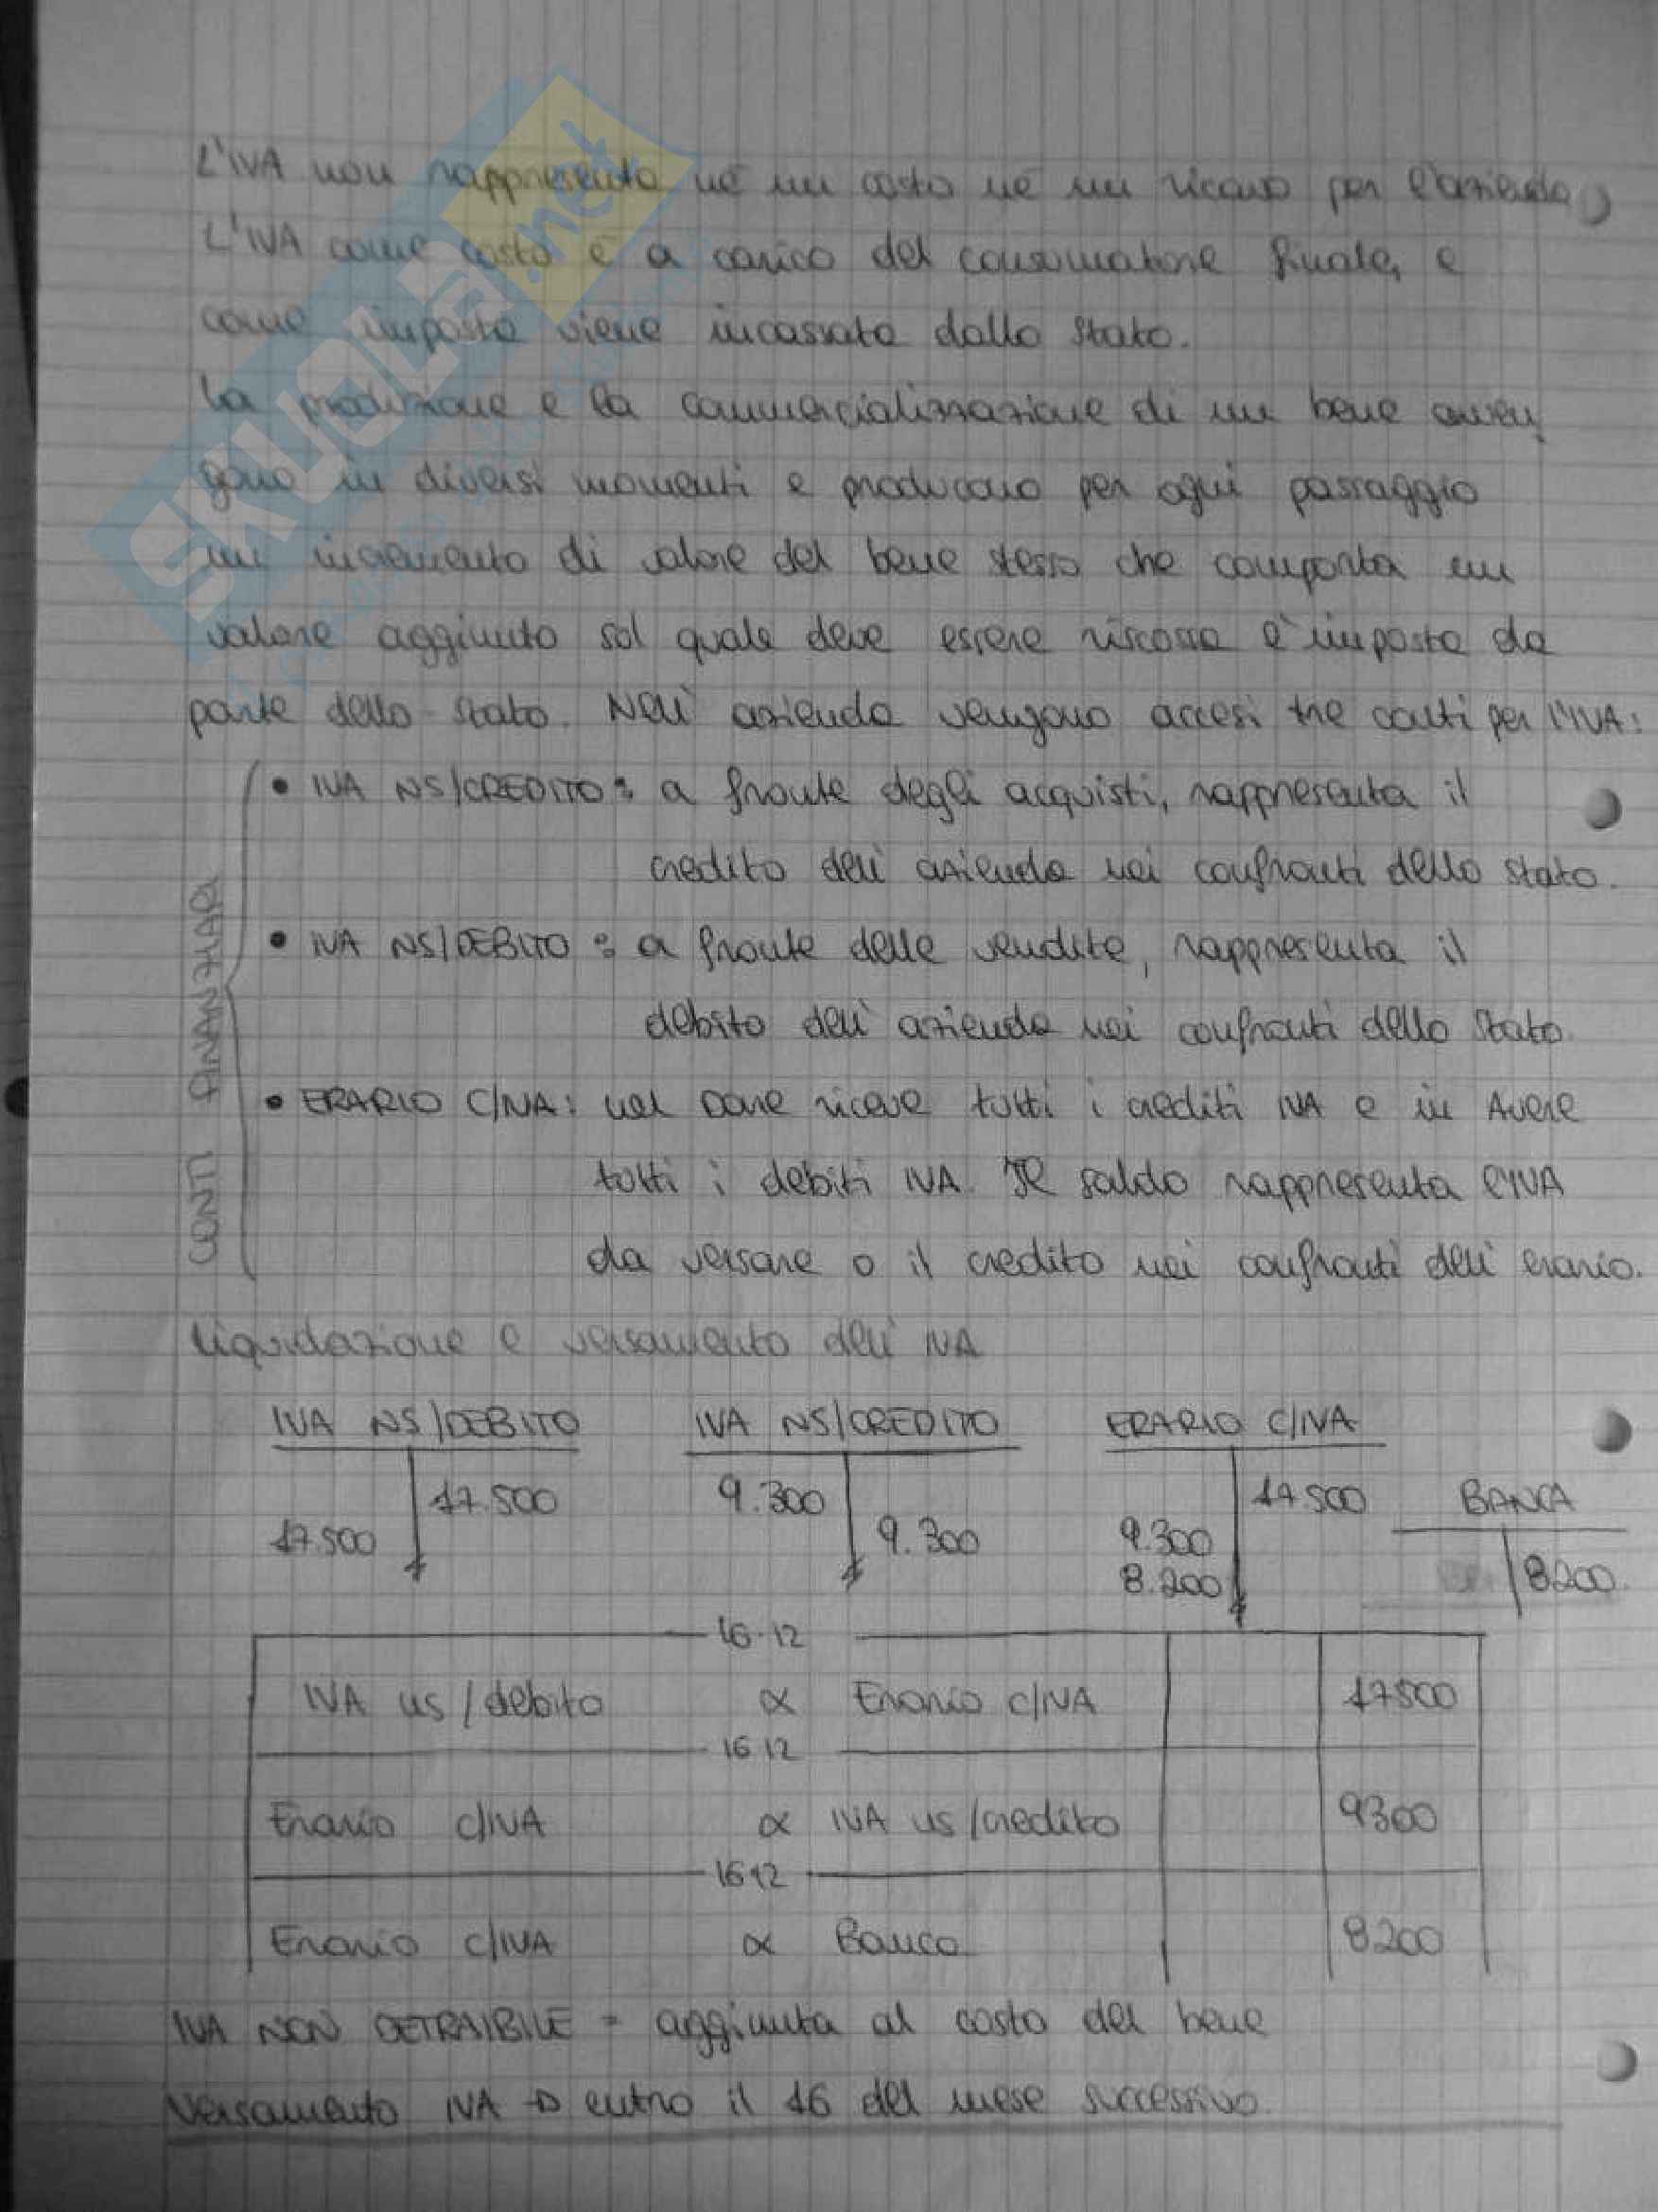 L'IVA non rappresenta nè un costo nè un ricavo per l'azienda)
L'IVA come costo è a carico del consumatore finale, e
come imposta viene incassata dallo Stato.
La produzione e la commercializzazione di un bene avven
gono in diversi momenti e producono per ogni passaggio
un incremento di valore del bene stesso che comporta un
valore aggiunto sul quale deve essere riscossa l'imposta da
parte dello stato. Nell'azienda vengono accesi tre conti per l'IVA:
CONTI FINANZIARI
• IVA NS/CREDITO: a fronte degli acquisti, rappresenta il
credito dell'azienda nei confronti dello stato.
• IVA NS/DEBITO: a fronte delle vendite, rappresenta il
debito dell'azienda nei confronti dello stato.
• ERARIO C/IVA: nel Dare riceve tutti i crediti IVA e in Avere
tutti i debiti IVA. Il saldo rappresenta l'IVA
da versare o il credito nei confronti dell'erario.
Liquidazione e versamento dell'IVA
IVA NS/DEBITO IVA NS/CREDITO ERARIO C/IVA
17.500 9.300 17.500 BANCA
17.500 9.300 9.300
8.200 8200
16.12
IVA ns/debito a Erario c/IVA 17500
16 12
Erario c/IVA a IVA ns/credito 9300
16 12
Erario c/IVA a Banca 8200
IVA NON DETRAIBILE = aggiunta al costo del bene
Versamento IVA → entro il 16 del mese successivo.
SKUOLA.net